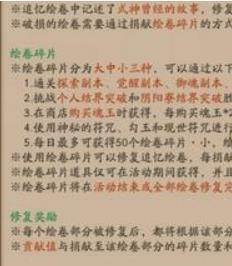 ※追忆绘卷中记述了式神曾经的故事，修复
※破损的绘卷需要通过捐献绘卷碎片的方式
绘卷碎片
※绘卷碎片分为大中小三种，可以通过以下
1.通关探索副本、觉醒副本、御魂副本、
2.挑战个人结界突破和阴阳寮结界突破胜
3.在商店购买魂玉时获得，每购买魂玉*2
4.使用神秘的符咒、勾玉和现世符咒进行
5.每日最多可获得50个绘卷碎片·小，绘
※使用绘卷碎片可以修复追忆绘卷，每捐献
※绘卷碎片道具仅在活动期间获得，并且
※绘卷碎片将在活动结束或全部绘卷修复完
修复奖励
※每个绘卷部分被修复后，都将根据该部分
※贡献值与捐献至该绘卷部分的碎片数量和